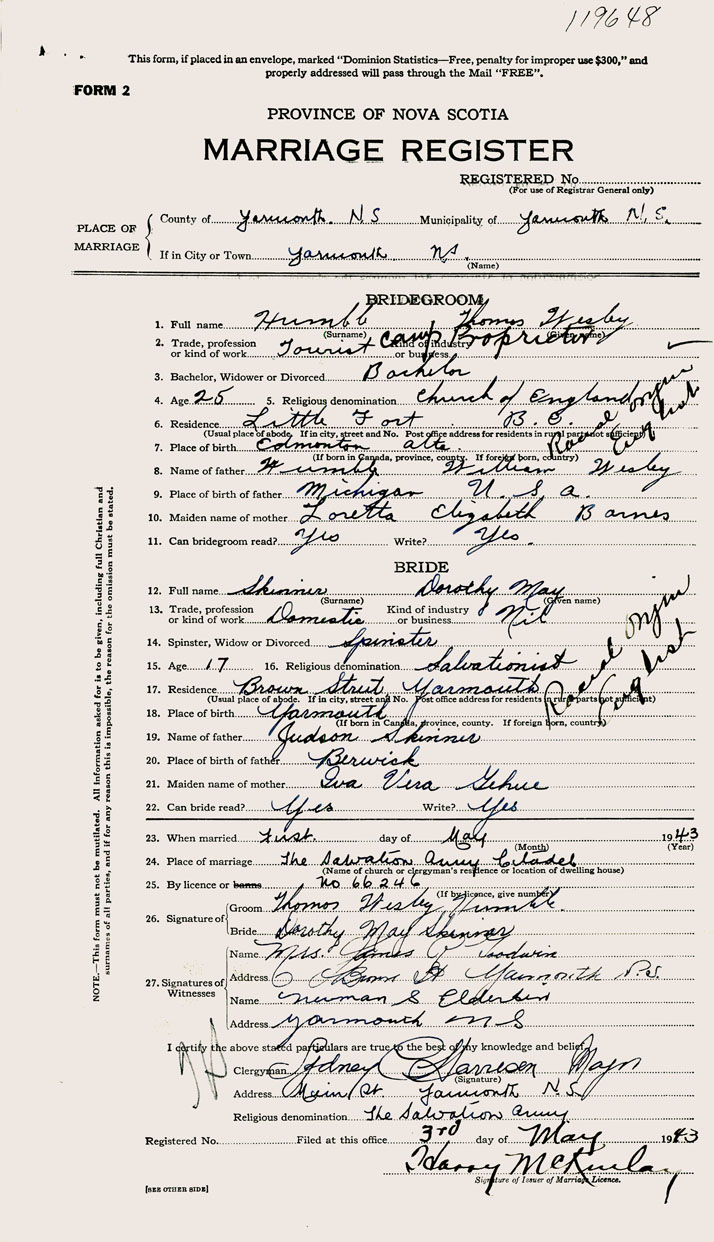 119648
This form, if placed in an envelope, marked "Dominion Statistics—Free, penalty for improper use $300," and
properly addressed will pass through the Mail "FREE".
FORM 2
PROVINCE OF NOVA SCOTIA
MARRIAGE REGISTER
REGISTERED No.
(For use of Registrar General only)
PLACE OF MARRIAGE
County of Yarmouth. N S Municipality of Yarmouth N. S.
If in City or Town Yarmouth NS.
(Name)
BRIDEGROOM
1. Full name Humble Thomas Wesley
(Surname) (Given name)
2. Trade, profession or kind of work Tourist Kind of industry or business Camp Proprietor
3. Bachelor, Widower or Divorced Bachelor
4. Age 25 5. Religious denomination Church of England
Racial Origin English
6. Residence Little Fort B. C.
(Usual place of abode. If in city, street and No. Post office address for residents in rural parts not sufficient)
7. Place of birth Edmonton Alta.
(If born in Canada, province, county. If foreign born, country)
8. Name of father Humble William Wesley
9. Place of birth of father Michigan U. S. a.
10. Maiden name of mother Loretta Elizabeth Barnes
11. Can bridegroom read? Yes Write? Yes.
BRIDE
12. Full name Skinner Dorothy May
(Surname) (Given name)
13. Trade, profession or kind of work Domestic Kind of industry or business Nil
14. Spinster, Widow or Divorced Spinster
15. Age 17 16. Religious denomination Salvationist
Racial Origin English
17. Residence Brown Street, Yarmouth
(Usual place of abode. If in city, street and No. Post office address for residents in rural parts not sufficient)
18. Place of birth Yarmouth
(If born in Canada, province, county. If foreign born, country)
19. Name of father Judson Skinner
20. Place of birth of father Berwick
21. Maiden name of mother Iva Vera Gehue
22. Can bride read? Yes Write? Yes
23. When married First. day of May 1943
(Month) (Year)
24. Place of marriage The Salvation Army Citadel
(Name of church or clergyman's residence or location of dwelling house)
25. By licence or banns No 66246
(If by licence, give number)
26. Signature of
Groom Thomas Wesley Humble.
Bride Dorothy May Skinner
27. Signatures of Witnesses
Name Mrs. James Goodwin
Address 6 Brown St Yarmouth N.S.
Name Neuman S Elderkin
Address Yarmouth N S
I certify the above stated particulars are true to the best of my knowledge and belief.
Clergyman Sydney Harrison Major
(Signature)
Address Main St. Yarmouth N.S.
Religious denomination The Salvation Army
Registered No. Filed at this office 3rd day of May 1943
Harry McKinlay
Signature of Issuer of Marriage Licence.
[SEE OTHER SIDE]
NOTE.—This form must not be mutilated. All information asked for is to be given, including full Christian and
surnames of all parties, and if for any reason this is impossible, the reason for the omission must be stated.